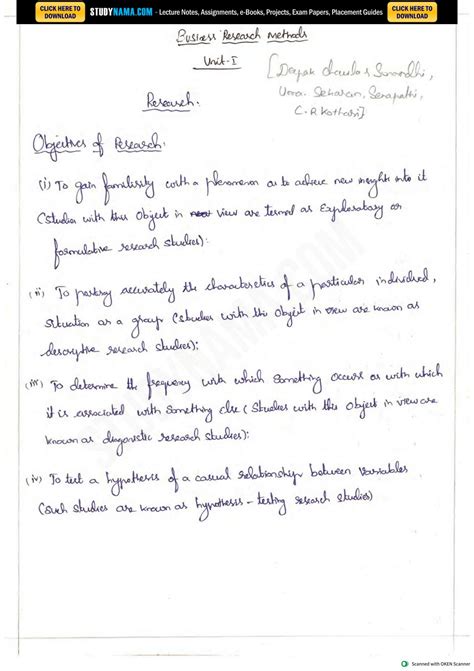 CLICK HERE TO DOWNLOAD STUDYNAMA.COM - Lecture Notes, Assignments, e-Books, Projects, Exam Papers, Placement Guides CLICK HERE TO DOWNLOAD
Business Research Methods
Unit-I
[Deepak Chawla & Sonondhi,
Uma Sekaran, Senapathi,
C.R Kothari]
Research.
Objectives of Research:
(i) To gain familiarity with a phenomenon or to achieve new insights into it
(Studies with this Object in view are termed as Exploratory or
formulative research studies):
(ii) To portray accurately the characteristics of a particular individual,
situation or a group (Studies with this Object in view are known as
descriptive research studies):
(iii) To determine the frequency with which something occurs or with which
it is associated with something else (Studies with this object in view are
known as diagnostic research studies):
(iv) To test a hypothesis of a casual relationship between variables
(Such studies are known as hypothesis - testing research studies)
STUDYNAMA.COM
Scanned with OKEN Scanner